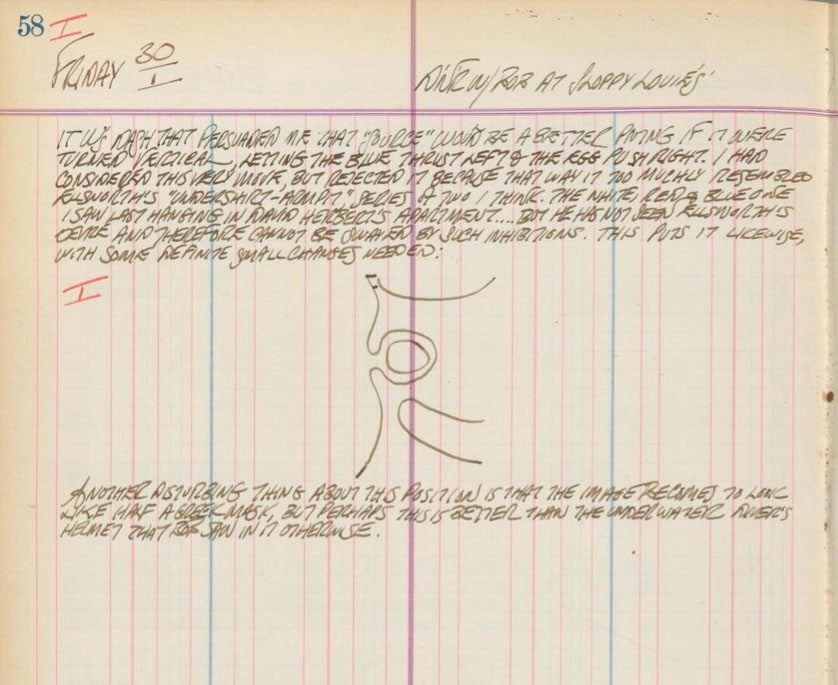 58 I
FRIDAY 30/1
DINR W/ BOB AT SLOPPY LOUIE'S
IT WS DASH THAT PERSUADED ME THAT "SOURCE" WOULD BE A BETTER PTING IF IT WERE
TURNED VERTICAL, LETTING THE BLUE THRUST LEFT & THE EGG PUSH RIGHT. I HAD
CONSIDERED THIS VERY MOVE, BUT REJECTED IT BECAUSE THAT WAY IT TOO MUCHLY RESEMBLED
ELLSWORTH'S "UNDERSHIRT-ARMPIT" SERIES OF TWO I THINK. THE WHITE RED & BLUE ONE
I SAW LAST HANGING IN DAVID HERBERT'S APARTMENT... BUT HE HAS NOT SEEN ELLSWORTH'S
AND THEREFORE CANNOT BE SWAYED BY SUCH INHIBITIONS. THIS PUTS IT LIKEWISE,
WITH SOME DEFINITE SMALL CHANGES NEEDED:
I
ANOTHER DISTURBING THING ABOUT THIS POSITION IS THAT THE IMAGE BECOMES TO LOOK
LIKE HALF A GREEK MASK, BUT PERHAPS THIS IS BETTER THAN THE UNDERWATER DIVER'S
HELMET THAT BOB SAW IN IT OTHERWISE.